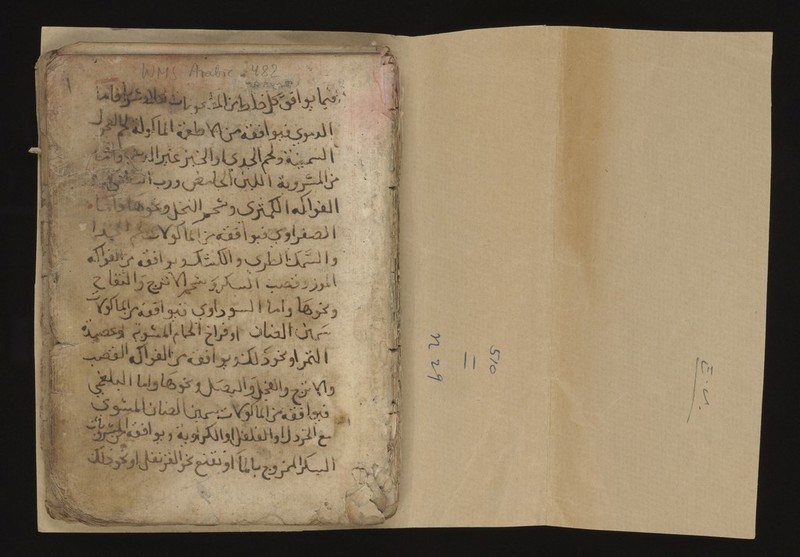 WMS Arabic 482
فيما يوافق كل خلط من
الدموي فيوافقه من الاطعمة الماكولة لحم
السمينة ولحم الجدي والخبز
من المشروبة اللبن الحامض ورب
الفواكه الكمثرى وشحم النخل ونحوها واما
الصفراوي فيوافقه من الماكولات
والسمك الطري والكشك ويوافقه من الفواكه
الموز وقصب السكر وشحم الاترنج والتفاح
ونحوها واما السوداوي فيوافقه من الماكولات
سمين الضان او فراخ الحمام المشوية او عصيدة
التمر او نحو ذلك ويوافقه من الفواكه القصب
والاترنج والفجل والبصل ونحوها واما البلغمي
فيوافقه من الماكولات سمين الضان المشوي
مع الخردل او الفلفل او الكراوية ويوافقه من المشروبات
السكر الممزوج بالماء او نقيع القرنفل او نحو ذلك
510
=
n 29